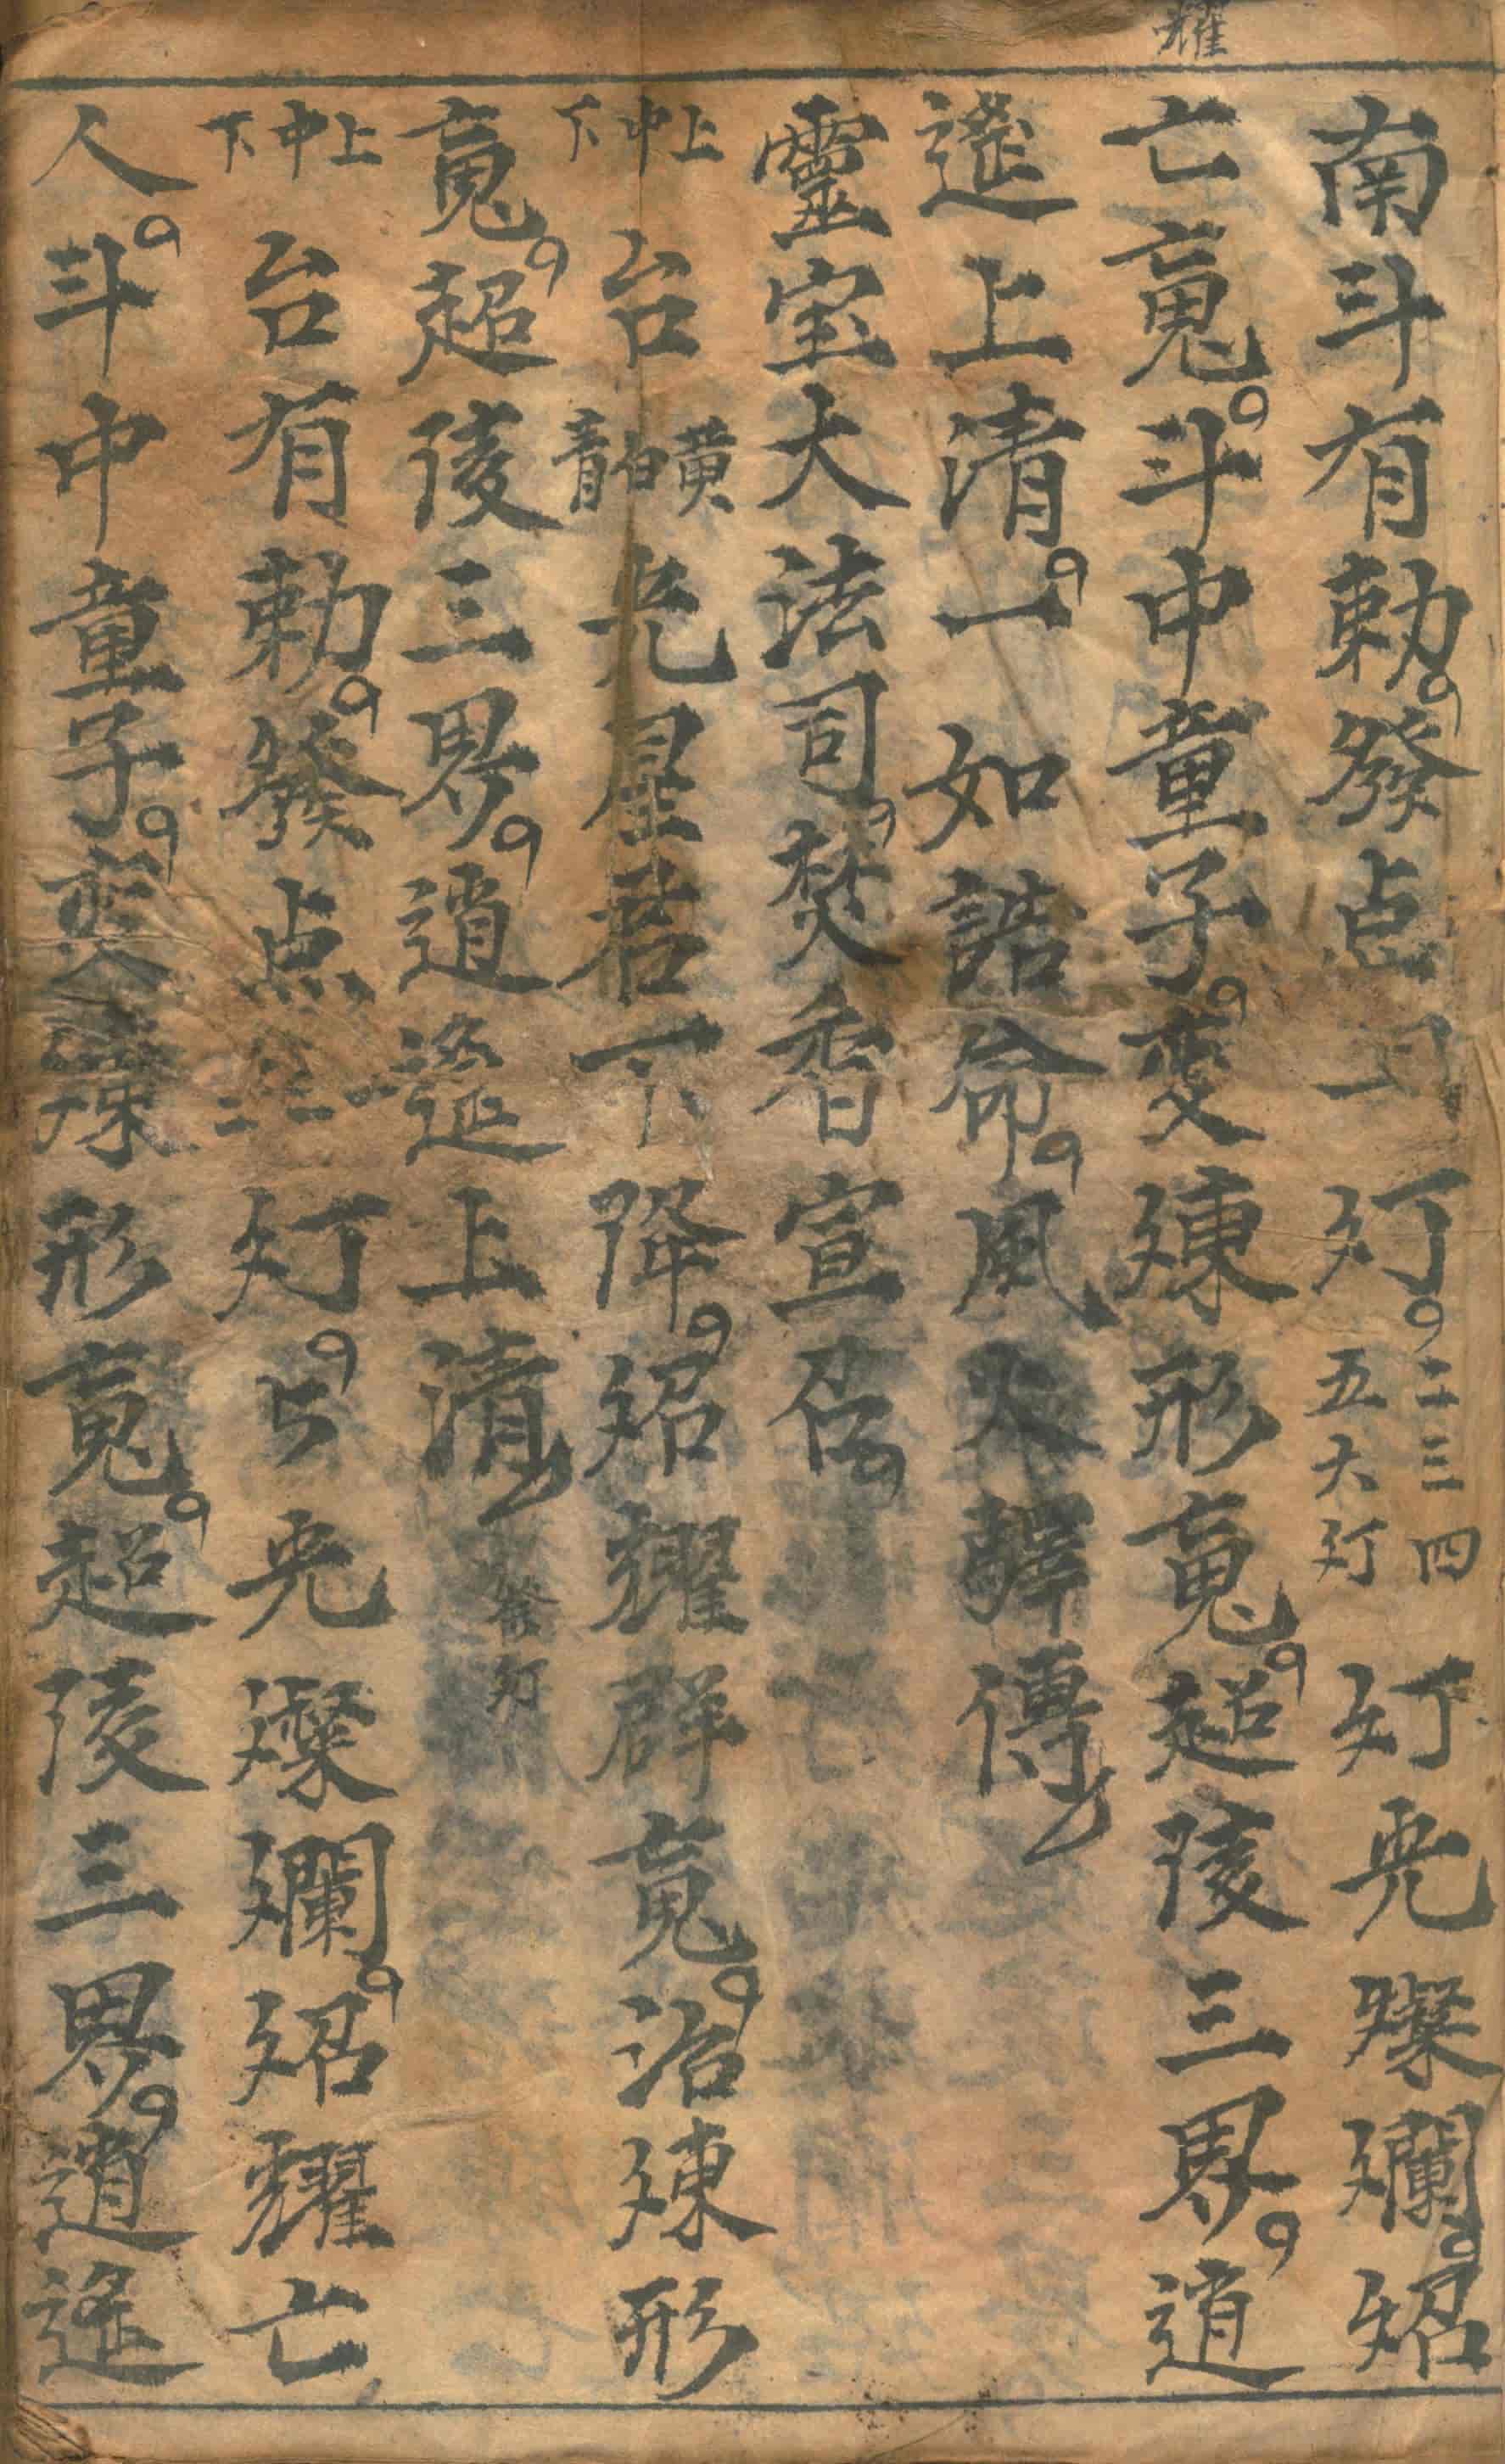 耀
南斗有勅發点一灯二三四五大灯灯光燦爛炤
亡䰟斗中童子変煉形䰟超陵三界逍
遙上清一如誥命風火驛傳
靈宝大法司焚香宣召
上中下台黄白青光星君下降炤耀群䰟治煉形
䰟超陵三界逍遙上清 發灯
上中下台有勅發点一二三灯灯光燦爛炤耀亡
人斗中童子変煉形䰟超陵三界逍遙